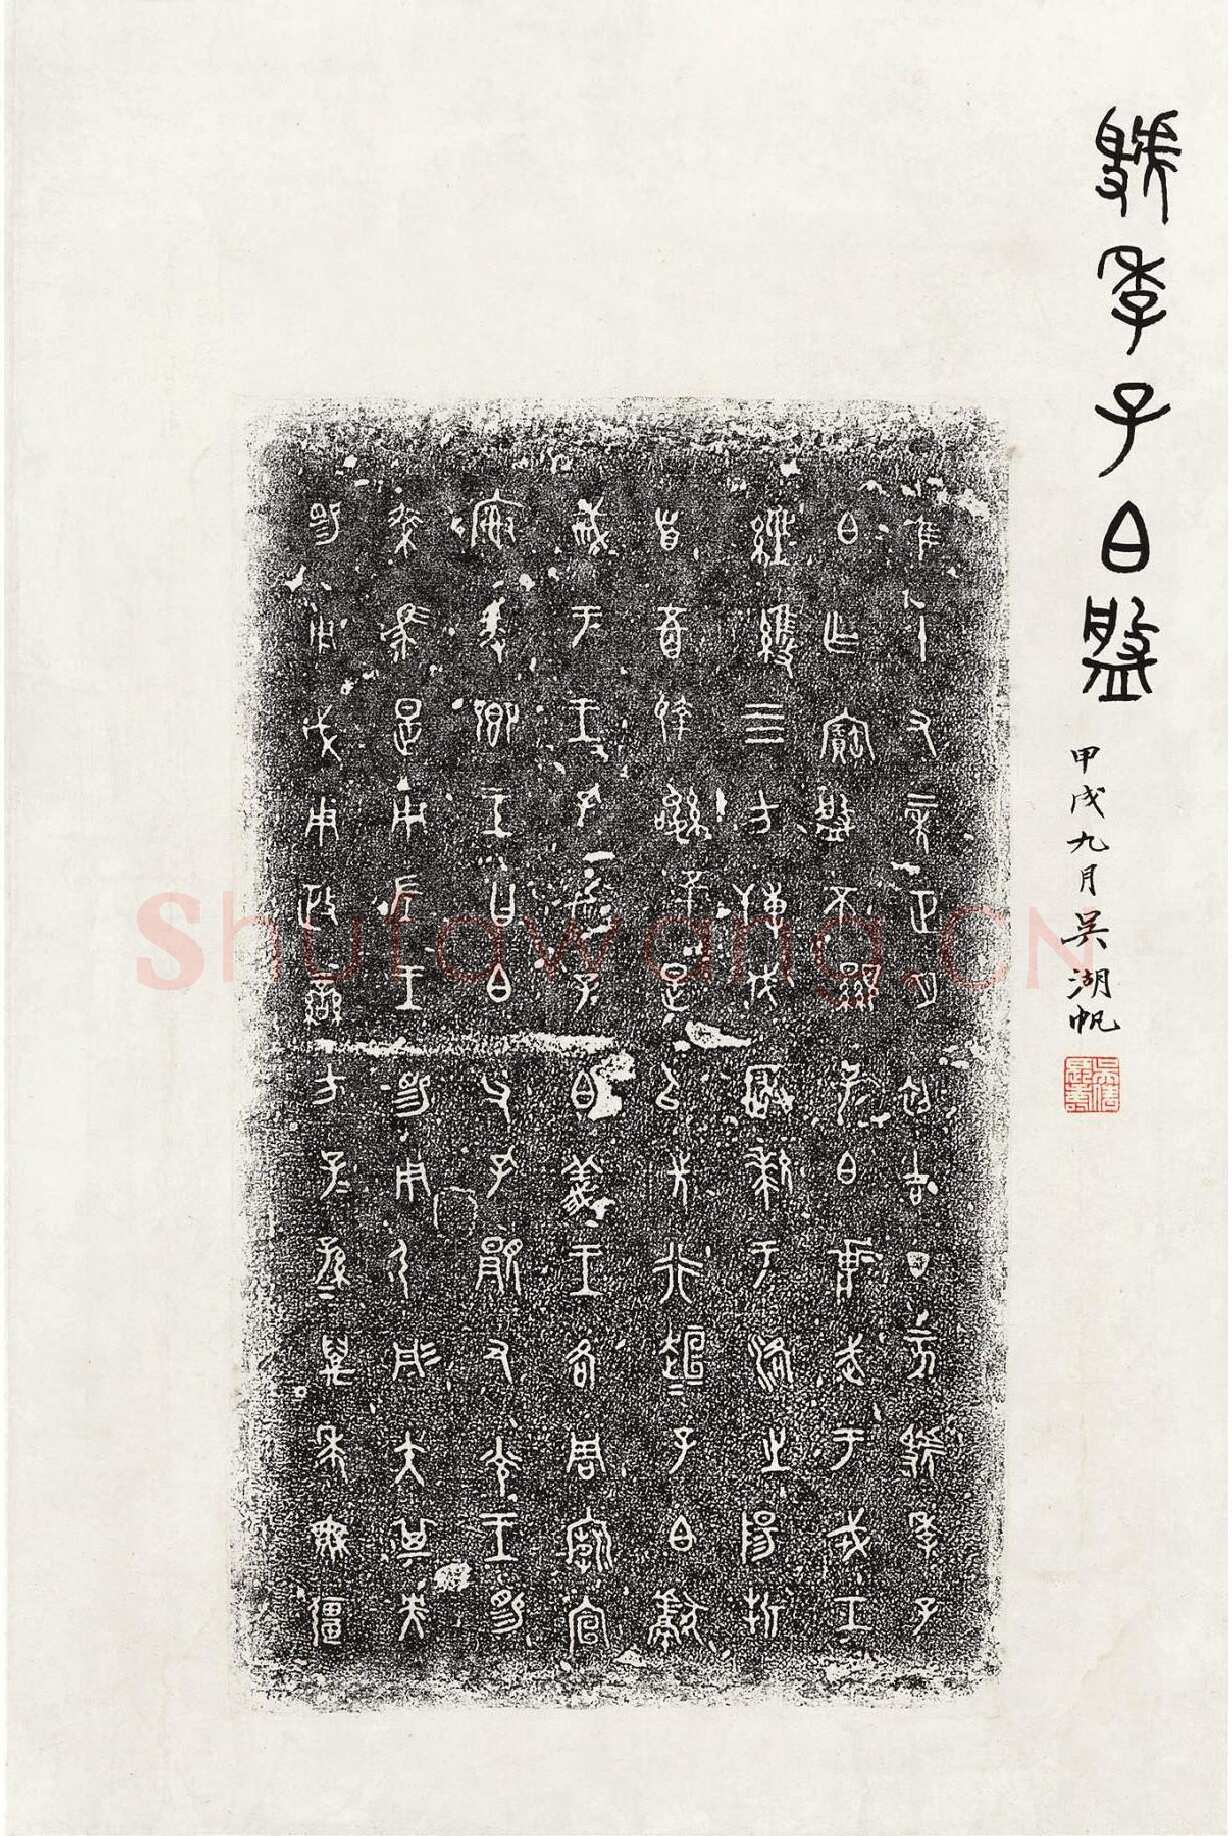 虢季子白盤
甲戌九月吳湖帆
隹十又二年正月初吉丁亥虢季子
白乍寶盤不顯子白壯武于戎工
經維四方博伐玁狁于洛之陽折
首五百執訊五十是以先行趄=子白獻
聝于王王孔加子白義王各周廟宣
榭爰鄉王曰白父孔顯又光王賜
乘馬是用左王賜用弓彤矢其央
賜用戉用政蠻方子=孫=萬年無疆
Shufawang.CN